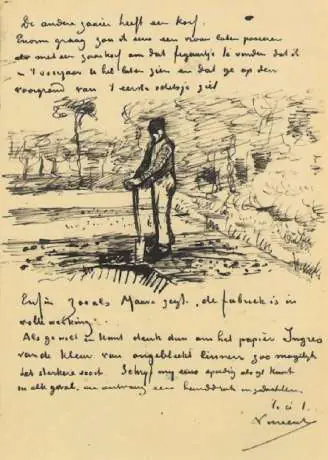 De andere zaaier heeft een korf.
Enorm graag zou ik eens een vrouw laten poseeren
met een zaaikorf om dat figuurtje te vinden dat ik
u 't voorjaar heb laten zien en dat ge op den
voorgrond van 't eerste schetsje ziet
Enfin zooals Mauve zegt, „de fabriek is in
volle werking".
Als ge wilt en kunt denk dan om het papier Ingres
van de kleur van ongebleekt linnen zoo mogelijk
het sterkere soort. Schrijf mij eens spoedig als gij kunt
in elk geval, en ontvang een handdruk in gedachten.
Vincent